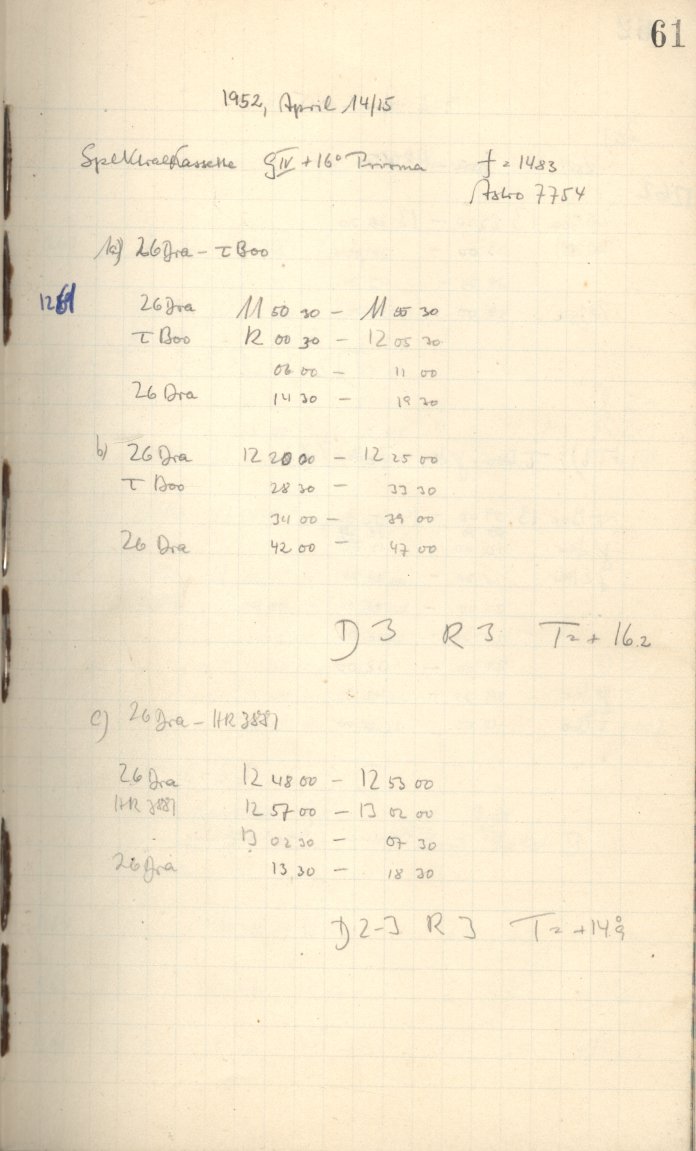 61
1952, April 14/15
Spektralkassette g IV + 16° Prisma f = 1483
Astro 7754
1a) 26 Dra - τ Boo
26 Dra 11 50 30 - 11 55 30
τ Boo 12 00 30 - 12 05 30
06 00 - 11 00
26 Dra 14 30 - 19 30
b) 26 Dra 12 20 00 - 12 25 00
τ Boo 28 30 - 33 30
34 00 - 39 00
26 Dra 42 00 - 47 00
D 3 R 3 T = + 16.2
c) 26 Dra - HR 3881
26 Dra 12 48 00 - 12 53 00
HR 3881 12 57 00 - 13 02 00
13 02 30 - 07 30
26 Dra 13 30 - 18 30
D 2-3 R 3 T = + 14°.9